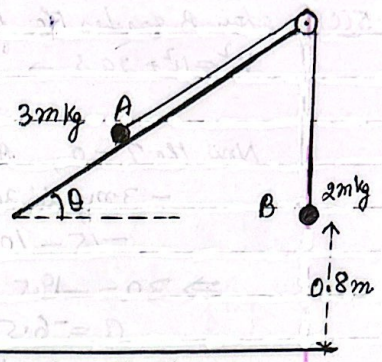 3mkg A
θ
B 2mkg
0.8m